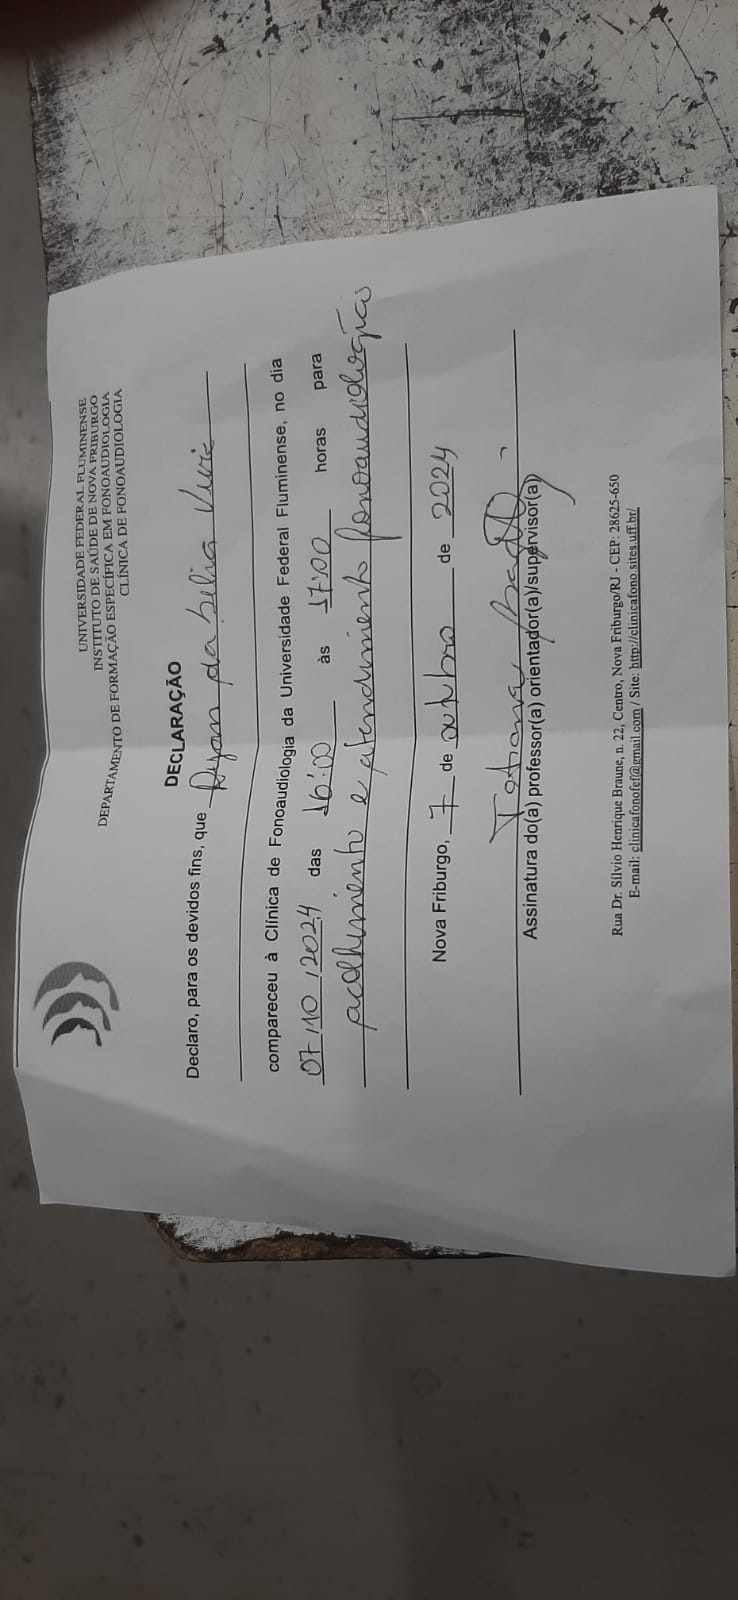 UNIVERSIDADE FEDERAL FLUMINENSE
INSTITUTO DE SAÚDE DE NOVA FRIBURGO
DEPARTAMENTO DE FORMAÇÃO ESPECÍFICA EM FONOAUDIOLOGIA
CLÍNICA DE FONOAUDIOLOGIA
DECLARAÇÃO
Declaro, para os devidos fins, que Ryan da Silva
compareceu à Clínica de Fonoaudiologia da Universidade Federal Fluminense, no dia
07/10/2024 das 16:00 às 17:00 horas para
acolhimento e atendimento fonoaudiológico
Nova Friburgo, 7 de outubro de 2024
Tatiana
Assinatura do(a) professor(a) orientador(a)/supervisor(a)
Rua Dr. Sílvio Henrique Braune, n. 22, Centro, Nova Friburgo/RJ - CEP: 28625-650
E-mail: clinicafonofef@gmail.com / Site: http://clinicafono.sites.uff.br/